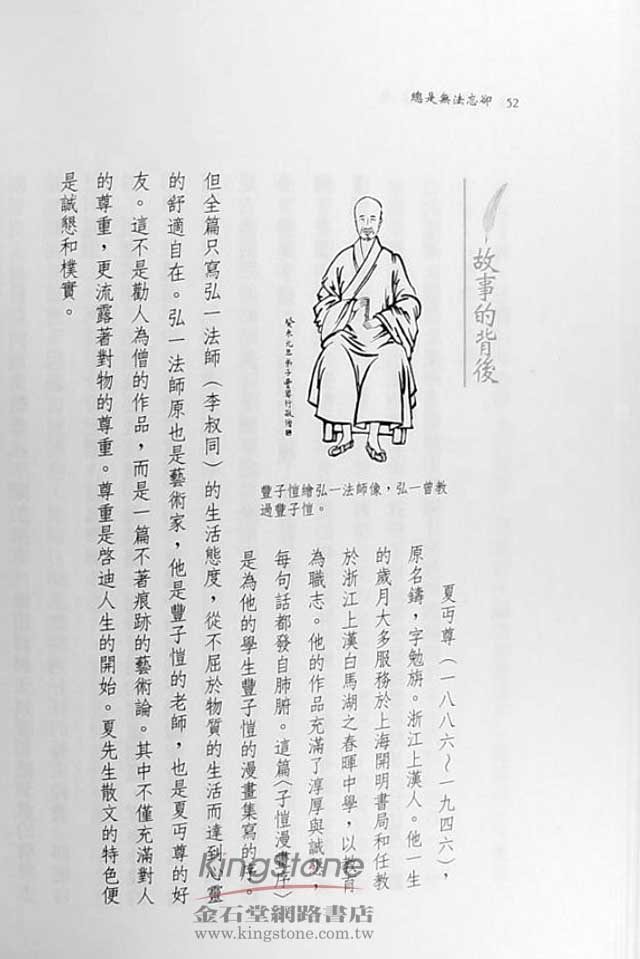 總是無法忘卻 52
故事的背後
癸未元旦弟子豐
豐子愷繪弘一法師像，弘一曾教
過豐子愷。
夏丏尊（一八八六～一九四六），
原名鑄，字勉旃。浙江上漢人。他一生
的歲月大多服務於上海開明書局和任教
於浙江上漢白馬湖之春暉中學，以教育
為職志。他的作品充滿了淳厚與誠
每句話都發自肺腑。這篇〈子愷漫畫序〉
是為他的學生豐子愷的漫畫集寫的序。
但全篇只寫弘一法師（李叔同）的生活態度，從不屈於物質的生活而達到心靈
的舒適自在。弘一法師原也是藝術家，他是豐子愷的老師，也是夏丏尊的好
友。這不是勸人為僧的作品，而是一篇不著痕跡的藝術論。其中不僅充滿對人
的尊重，更流露著對物的尊重。尊重是啓迪人生的開始。夏先生散文的特色便
是誠懇和樸實。
KingStone
金石堂網路書店
www.kingstone.com.tw